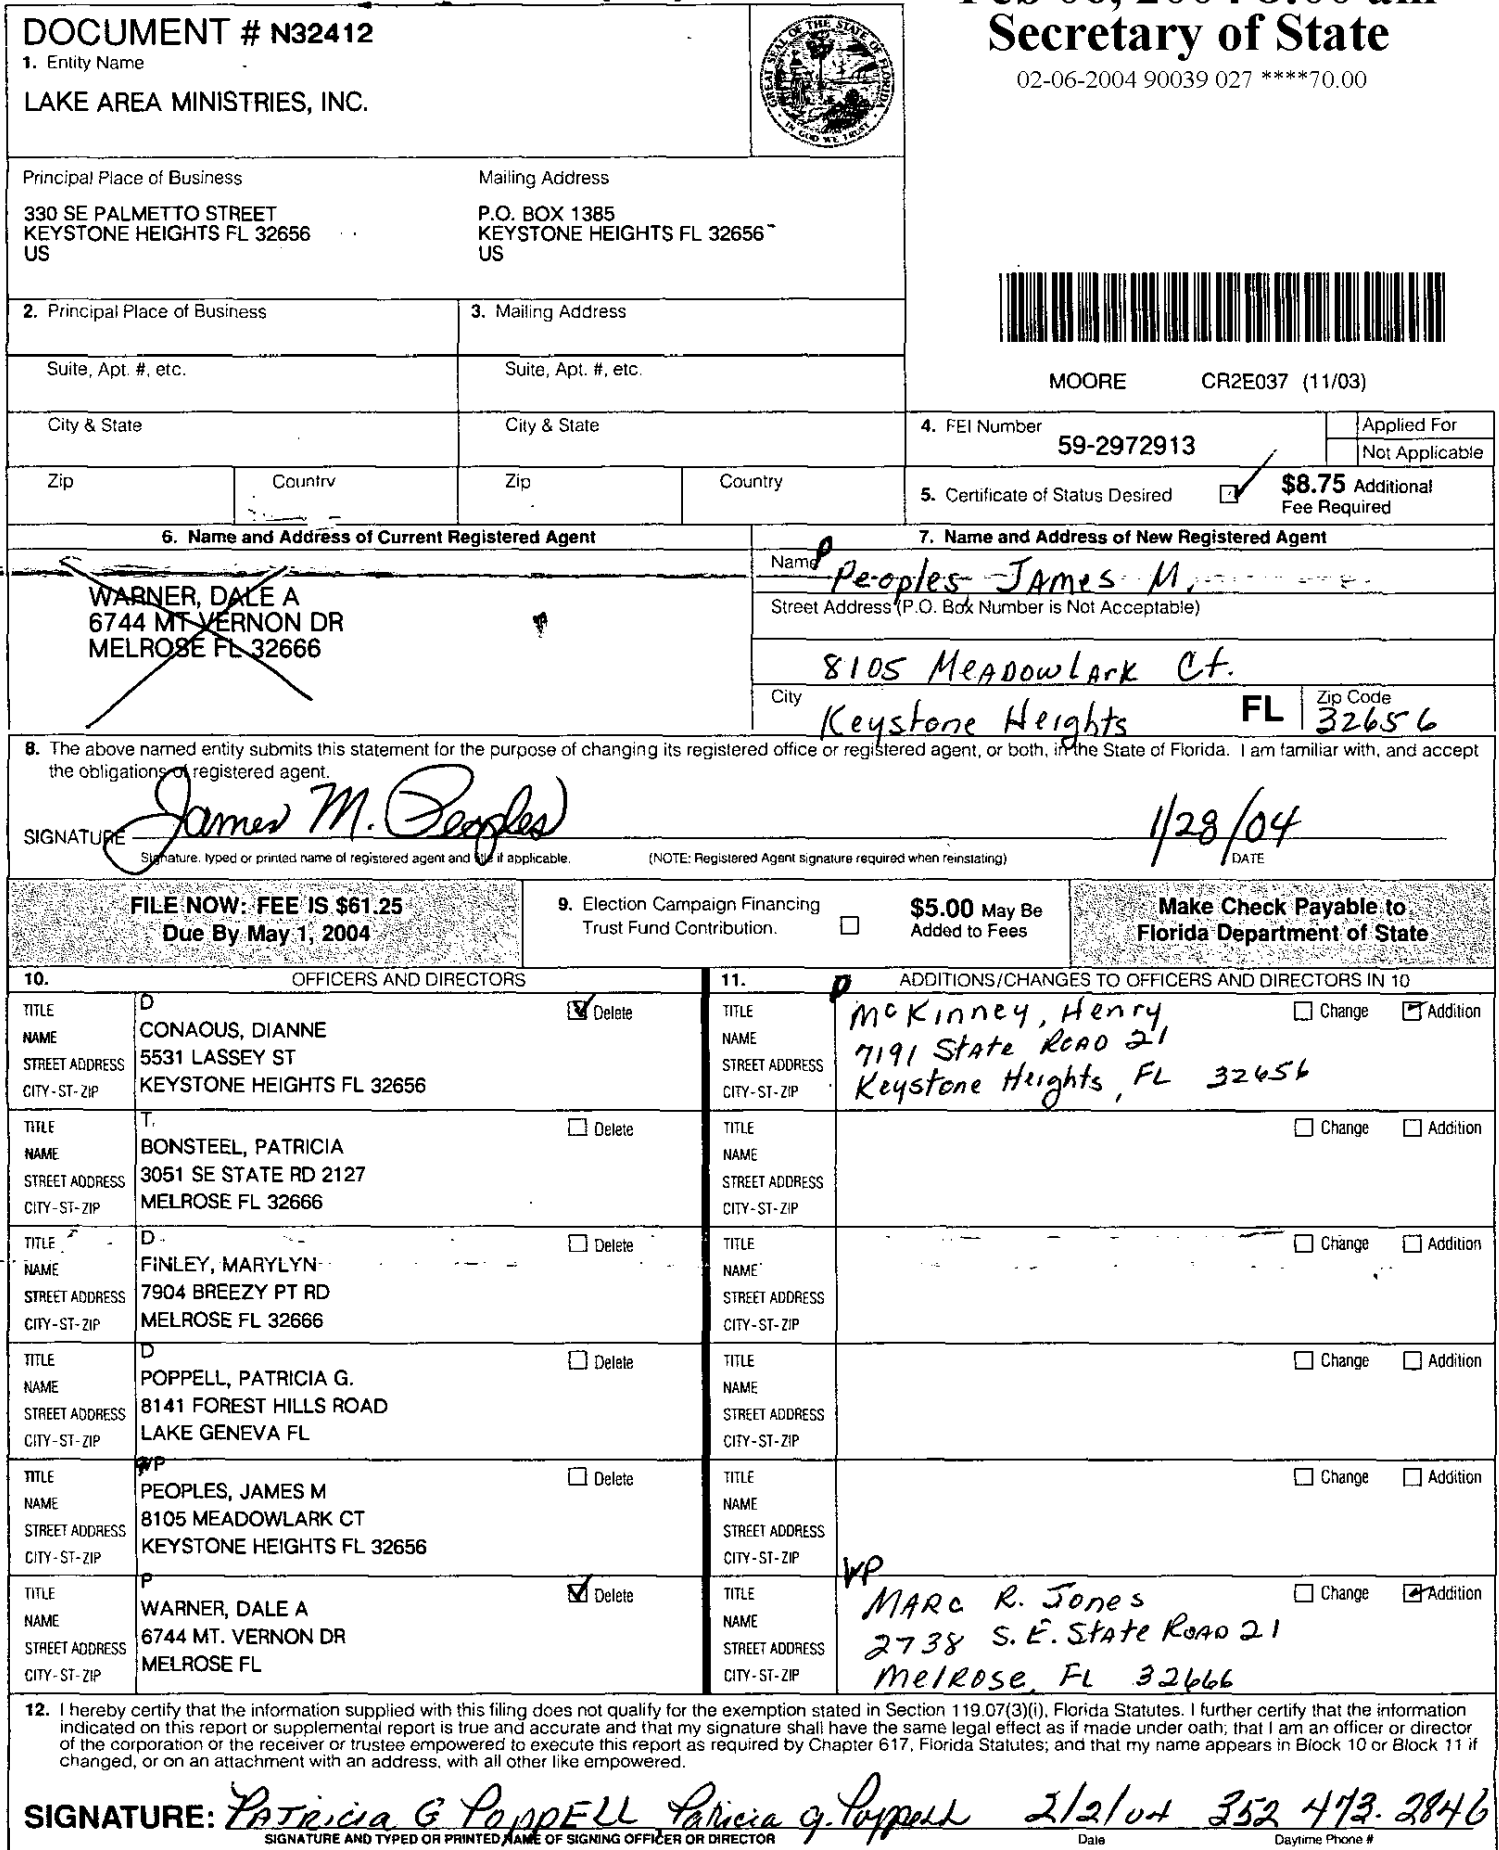 Secretary of State
02-06-2004 90039 027 ****70.00
DOCUMENT # N32412
1. Entity Name
LAKE AREA MINISTRIES, INC.
GREAT SEAL OF THE STATE OF FLORIDA
IN GOD WE TRUST
Principal Place of Business
Mailing Address
330 SE PALMETTO STREET
KEYSTONE HEIGHTS FL 32656
US
P.O. BOX 1385
KEYSTONE HEIGHTS FL 32656
US
2. Principal Place of Business
3. Mailing Address
Suite, Apt. #, etc.
Suite, Apt. #, etc.
City & State
City & State
Zip
Country
Zip
Country
MOORE CR2E037 (11/03)
4. FEI Number
59-2972913
Applied For
Not Applicable
5. Certificate of Status Desired
$8.75 Additional
Fee Required
6. Name and Address of Current Registered Agent
WARNER, DALE A
6744 MT VERNON DR
MELROSE FL 32666
7. Name and Address of New Registered Agent
Name
Peoples James M.
Street Address (P.O. Box Number is Not Acceptable)
8105 Meadowlark Ct.
City
Keystone Heights
FL
Zip Code
32656
8. The above named entity submits this statement for the purpose of changing its registered office or registered agent, or both, in the State of Florida. I am familiar with, and accept
the obligations of registered agent.
SIGNATURE James M. Peoples 1/28/04
Signature, typed or printed name of registered agent and title if applicable. (NOTE: Registered Agent signature required when reinstating) DATE
FILE NOW: FEE IS $61.25
Due By May 1, 2004
9. Election Campaign Financing
Trust Fund Contribution.
$5.00 May Be
Added to Fees
Make Check Payable to
Florida Department of State
10. OFFICERS AND DIRECTORS
TITLE D Delete
NAME CONAOUS, DIANNE
STREET ADDRESS 5531 LASSEY ST
CITY-ST-ZIP KEYSTONE HEIGHTS FL 32656
TITLE T. Delete
NAME BONSTEEL, PATRICIA
STREET ADDRESS 3051 SE STATE RD 2127
CITY-ST-ZIP MELROSE FL 32666
TITLE D Delete
NAME FINLEY, MARYLYN
STREET ADDRESS 7904 BREEZY PT RD
CITY-ST-ZIP MELROSE FL 32666
TITLE D Delete
NAME POPPELL, PATRICIA G.
STREET ADDRESS 8141 FOREST HILLS ROAD
CITY-ST-ZIP LAKE GENEVA FL
TITLE VP Delete
NAME PEOPLES, JAMES M
STREET ADDRESS 8105 MEADOWLARK CT
CITY-ST-ZIP KEYSTONE HEIGHTS FL 32656
TITLE P Delete
NAME WARNER, DALE A
STREET ADDRESS 6744 MT. VERNON DR
CITY-ST-ZIP MELROSE FL
11. ADDITIONS/CHANGES TO OFFICERS AND DIRECTORS IN 10
TITLE D Change Addition
NAME McKinney, Henry
STREET ADDRESS 7191 State Road 21
CITY-ST-ZIP Keystone Heights, FL 32656
TITLE Change Addition
NAME
STREET ADDRESS
CITY-ST-ZIP
TITLE Change Addition
NAME
STREET ADDRESS
CITY-ST-ZIP
TITLE Change Addition
NAME
STREET ADDRESS
CITY-ST-ZIP
TITLE Change Addition
NAME
STREET ADDRESS
CITY-ST-ZIP
TITLE VP Change Addition
NAME Marc R. Jones
STREET ADDRESS 2738 S.E. State Road 21
CITY-ST-ZIP Melrose, FL 32666
12. I hereby certify that the information supplied with this filing does not qualify for the exemption stated in Section 119.07(3)(i), Florida Statutes. I further certify that the information
indicated on this report or supplemental report is true and accurate and that my signature shall have the same legal effect as if made under oath; that I am an officer or director
of the corporation or the receiver or trustee empowered to execute this report as required by Chapter 617, Florida Statutes; and that my name appears in Block 10 or Block 11 if
changed, or on an attachment with an address, with all other like empowered.
SIGNATURE: Patricia G Poppell Patricia G. Poppell 2/2/04 352 473-2846
SIGNATURE AND TYPED OR PRINTED NAME OF SIGNING OFFICER OR DIRECTOR Date Daytime Phone #